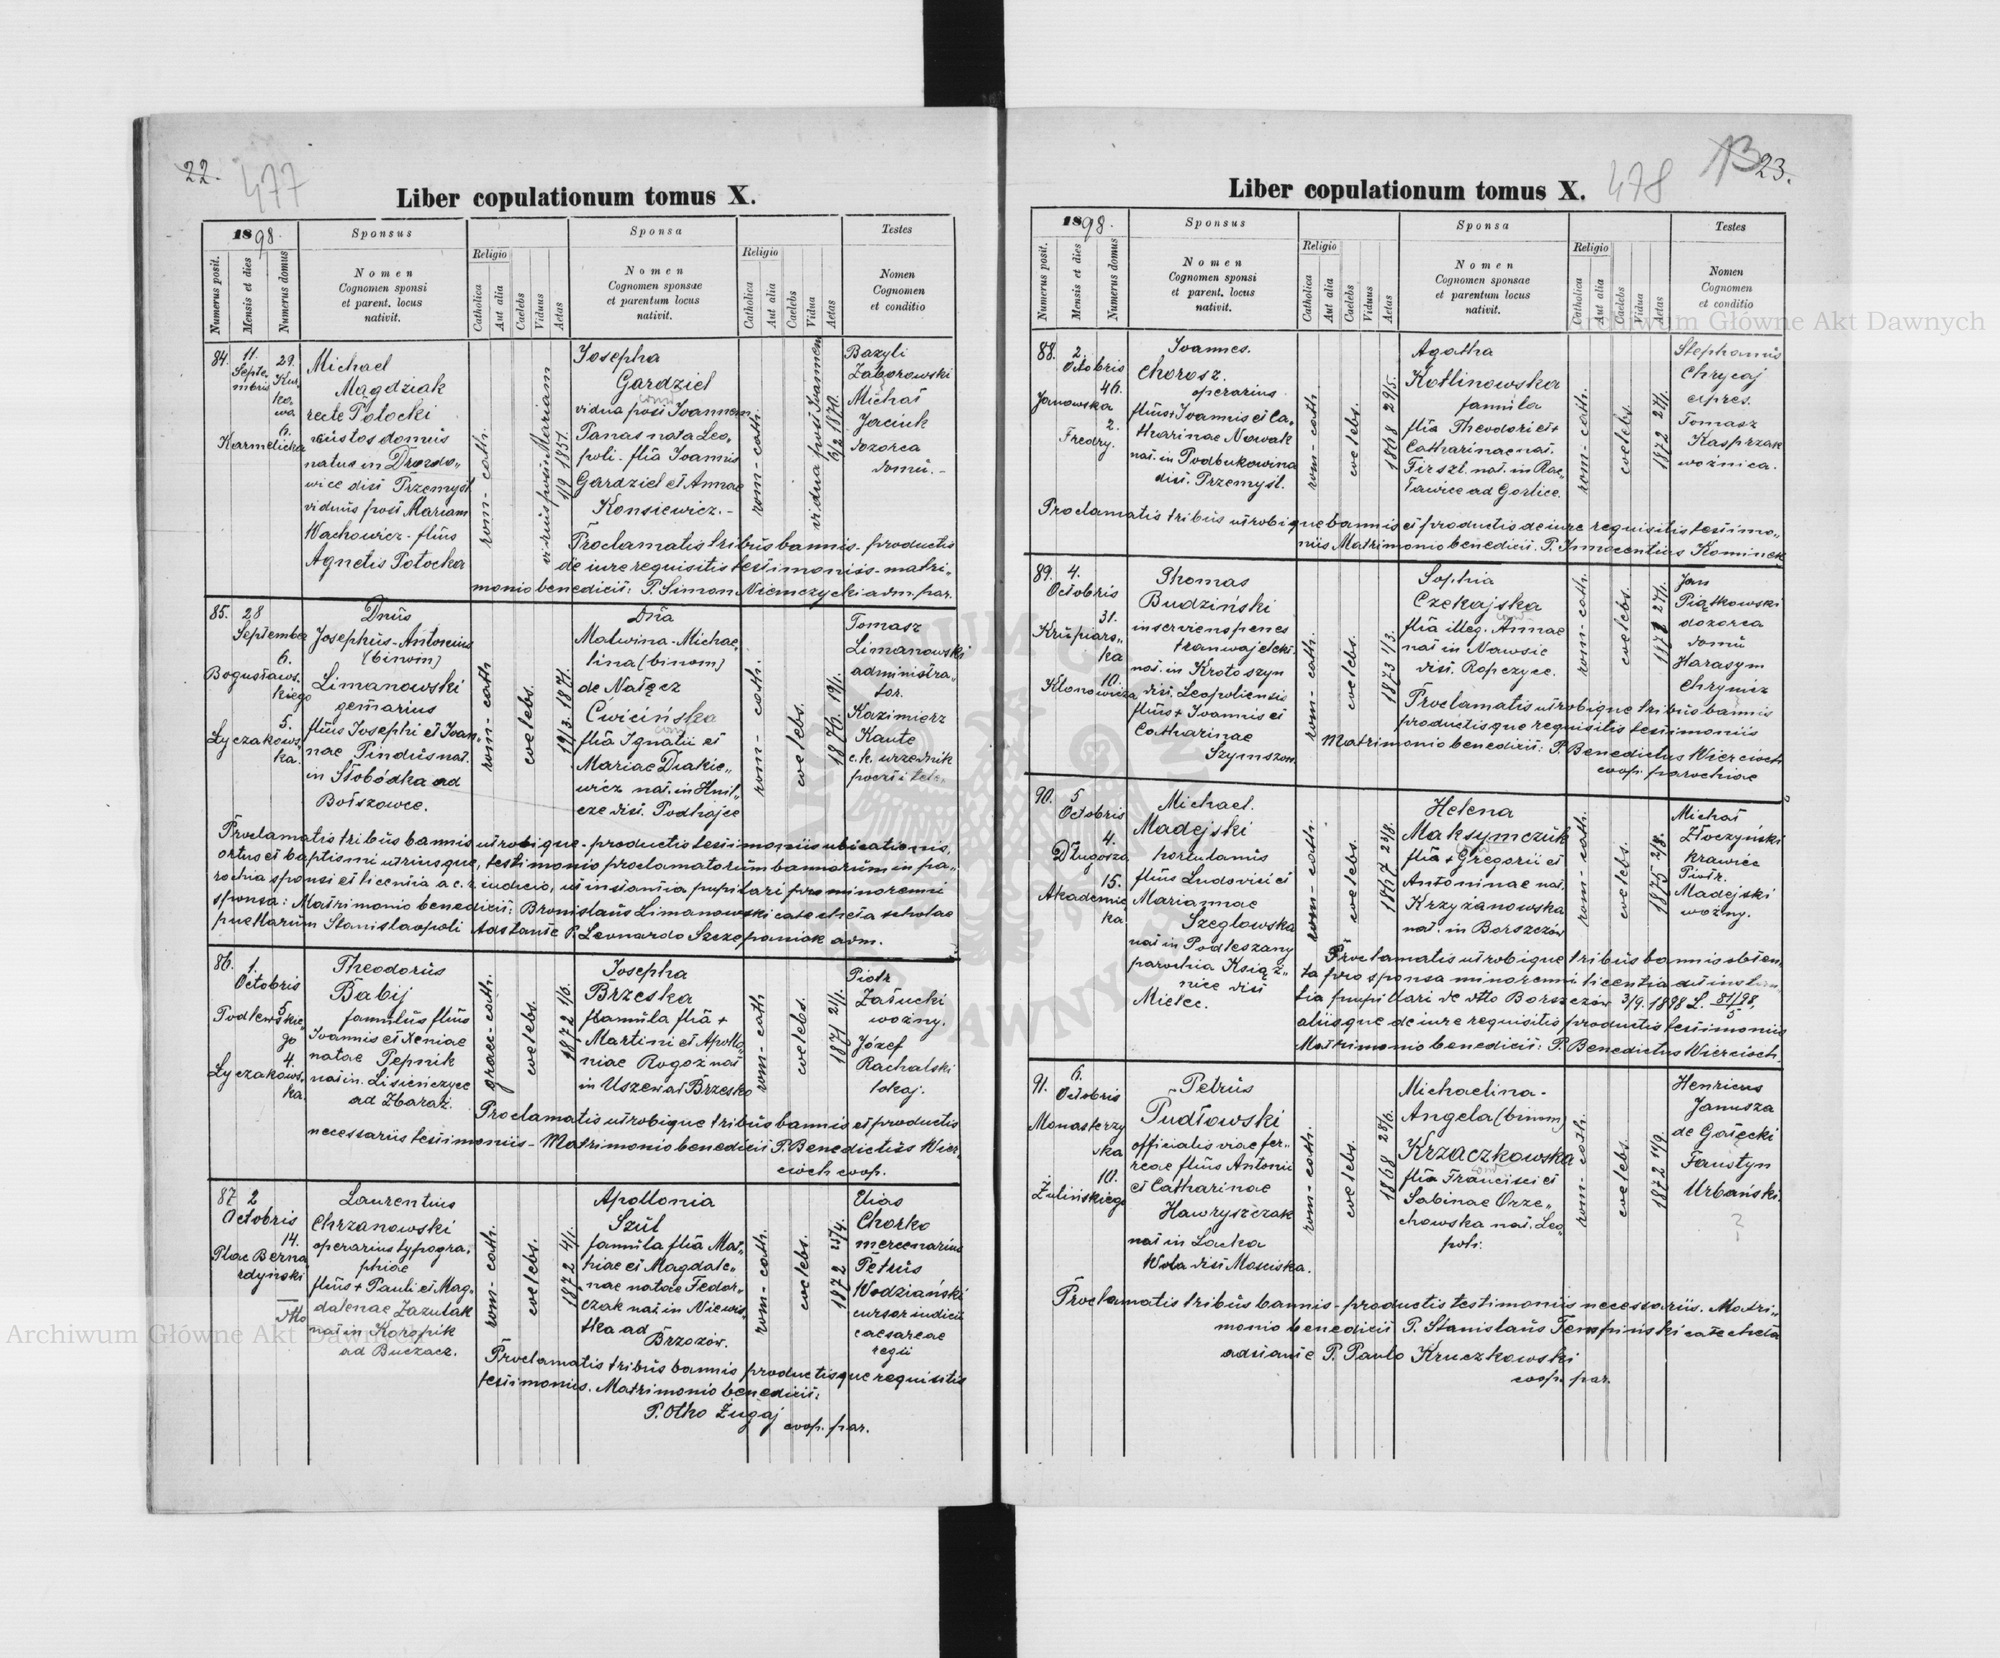 22.
477
Liber copulationum tomus X.
1898.
Numerus posit.
Mensis et dies
Numerus domus
Sponsus
Nomen
Cognomen sponsi
et parent. locus
nativit.
Religio
Catholica
Aut alia
Caelebs
Viduus
Aetas
Sponsa
Nomen
Cognomen sponsae
et parentum locus
nativit.
Religio
Catholica
Aut alia
Caelebs
Vidua
Aetas
Testes
Nomen
Cognomen
et conditio
84.
11.
Septe
mbris
29.
Kur
ko
wa
6.
Karmelicka
Michael
Magdziak
recte Potocki
custos domus
natus in Drozdo„
wice dist Przemysl
viduus post Mariam
Wachowicz - filius
Agnetis Potocka
rom - cath.
viduus post Mariam
1/9 1851.
Josepha
Gardziel
vidua post Joannem
Panas nata Leo„
poli. filia Joannis
Gardziel et Annae
Konsiewicz. -
rom - cath.
vidua post Joannem
1870.
Bazyli
Zaborowski
Michał
Jaciuk
dozorca
domu. -
Proclamatis tribus bannis - productis
de iure requisitis testimoniis - matri„
monio benedixit: P. Simon Niemczycki adm. par.
85.
28
September
6.
Bogusławs.
kiego
5.
Łyczakows.
ka.
Dnus
Josephus - Antonius
(binom)
Limanowski
gemmarius
filius Josephi et Joan„
nae Pindus nat.
in Słobódka ad
Bołszowce.
rom - cath
coelebs.
19/3. 1871.
Dna
Malwina - Michae„
lina (binom)
de Nałęcz
Ćwicińska
filia Ignatii et
Mariae Diakie„
wicz nat. in Hnil„
cze dist. Podhajce
rom - cath.
coelebs.
1876. 19/1.
Tomasz
Limanowski
administra„
tor.
Kazimierz
Kaute
c. k. urzędnik
poczt i tel.
Proclamatis tribus bannis utrobique - productis testimoniis ubicationis,
ortus et baptismi utriusque, testimonio proclamatorum bannorum in pa„
rochia sponsi et licentia a c. r. iudicio, ut instantia pupilari pro minorenni
sponsa: Matrimonio benedixit: Bronislaus Limanowski catecheta scholae
puellarum Stanislaopoli Adstante P. Leonardo Szczepaniak adm.
86.
1.
Octobris
5
Podlewskie„
go
4.
Łyczakows„
ka.
Theodorus
Babij
famulus filius
Joannis et Xeniae
natae Pepnik
nat in. Lisieńczyce
ad Zbaraż.
graec - cath.
coelebs.
1872 1/6.
Josepha
Brzeska
famula filia +
Martini et Apollo
niae Rogoz nat
in Uszew ad Brzesko
rom - cath
coelebs
1871 21/1.
Piotr
Załucki
woźny.
Józef
Rachalski
lokaj.
Proclamatis utrobique tribus bannis et productis
necessariis testimoniis - Matrimonio benedixit P. Benedictus Wier„
cioch coop.
87
2
Octobris
14.
Plac Berna
rdyński
dtto
Laurentius
Chrzanowski
operarius typogra„
phiae
filius + Pauli et Mag„
dalenae Zazulak
nat in Koropik
ad Buczacz.
rom - cath.
coelebs.
1872 4/1.
Apollonia
Szül
famula filia Mat„
thiae et Magdale„
nae natae Fedor„
czak nat in Niewis
tka ad
Brzozów.
rom - cath.
coelebs.
1872 25/4.
Elias
Chorko
mercenarius
Petrus
Wodziański
cursor iudicii
caesareae
regii
Proclamatis tribus bannis productisque requisitis
testimoniis. Matrimonio benedixit:
P. Otho Żugaj
coop. par.
23.
478
Liber copulationum tomus X.
1898.
Numerus posit.
Mensis et dies
Numerus domus
Sponsus
Nomen
Cognomen sponsi
et parent. locus
nativit.
Religio
Catholica
Aut alia
Caelebs
Viduus
Aetas
Sponsa
Nomen
Cognomen sponsae
et parentum locus
nativit.
Religio
Catholica
Aut alia
Caelebs
Vidua
Aetas
Testes
Nomen
Cognomen
et conditio
88.
2.
Octobris
46.
Janowska
2.
Fredry.
Joannes.
Chorosz.
operarius
filius + Joannis et Ca„
tharinae Nowak
nat. in Podbukowina
dist. Przemysl.
rom - cath.
coelebs.
1868 29/5.
Agatha
Kotlinowska
famula
filia Theodori et +
Catharinae nat.
Firszt. nat. in Rac„
ławice ad Gorlice.
rom - cath.
coelebs.
1872 27/1.
Stephanus
Chrycaj
expres.
Tomasz
Kasprzak
woźnica.
Proclamatis tribus utrobique bannis et productis de iure requisitis testimo„
niis Matrimonio benedixit. P. Innocentius Kominek
89.
4.
Octobris
31.
Krupiars„
ka
10.
Klonowicza
Thomas
Budziński
inserviens penes
tramwaj elekt.
nat. in Krotoszyn
dist. Leopoliensis
filius + Joannis et
Catharinae
Szymszon.
rom - cath.
coelebs.
1873 1/3.
Sophia
Czekajska
filia illeg. Annae
nat in Nawsie
dist. Ropczyce.
rom - cath.
coelebs.
27/1.
Jan
Piątkowski
dozorca
domu
Harasym
Chrynicz
Proclamatis utrobique tribus bannis
productisque requisitis testimoniis
Matrimonio benedixit: P. Benedictus Wiercioch
coop. parochiae
90.
5
Octobris
4.
Długosza
15.
Akademic
ka.
Michael.
Madejski
hortulanus
filius Ludovici et
Mariannae
Szeglowska
nat in Podleszany
parochia Książ„
nice dist
Mielec.
rom - cath.
coelebs.
1867 22/8.
Helena
Maksymczuk
filia + Gregorii et
Antoninae nat.
Krzyżanowska
nat. in Borszczów
rom - cath.
coelebs.
1875 2/8.
Michał
Złoczyński
krawiec
Piotr.
Madejski
woźny.
Proclamatis utrobique tribus bannis obten„
ta pro sponsa minorenni licentia ut instan„
tia pupillari de dtto Borszczów 3/9. 1898 L. 81/98,
5
aliisque de iure requisitis productis testimoniis
Matrimonio benedixit: P. Benedictus Wiercioch.
91.
6.
Octobris
Monasterzy
ska
10.
Żulińskiego
Petrus
Pudłowski
officialis viae fer„
reae filius Antonii
et Catharinae
Hawryszczak
nat in Lacka
Wola dist Mosciska.
rom - cath.
coelebs.
1868 28/6.
Michaelina -
Angela (binom)
Krzaczkowska
filia Francisci et
Sabinae Orze„
chowska nat. Leo„
poli.
rom - cath.
coelebs.
1872 19/9.
Henricus
Janusza
de Gałęcki
Faustyn
Urbański.
?
Proclamatis tribus bannis - productis testimoniis necessariis. Matri„
monio benedixit P. Stanislaus Tempiński catecheta
adstante P. Paulo Kruczkowski
coop. par.
Archiwum Główne Akt Dawnych
Archiwum Główne Akt Dawnych